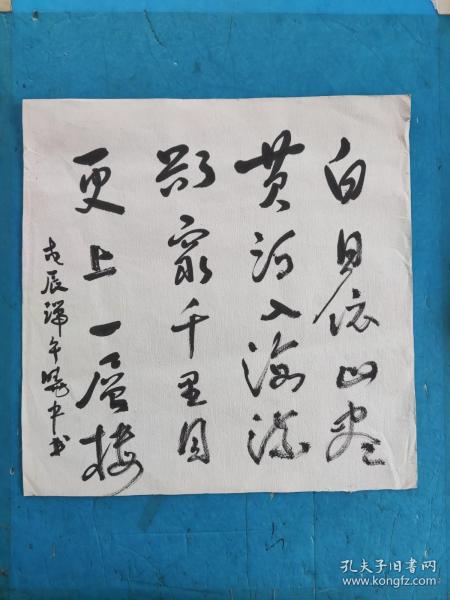 白日依山尽
黄河入海流
欲穷千里目
更上一层楼
戊辰端午晓中书
孔夫子旧书网
www.kongfz.com